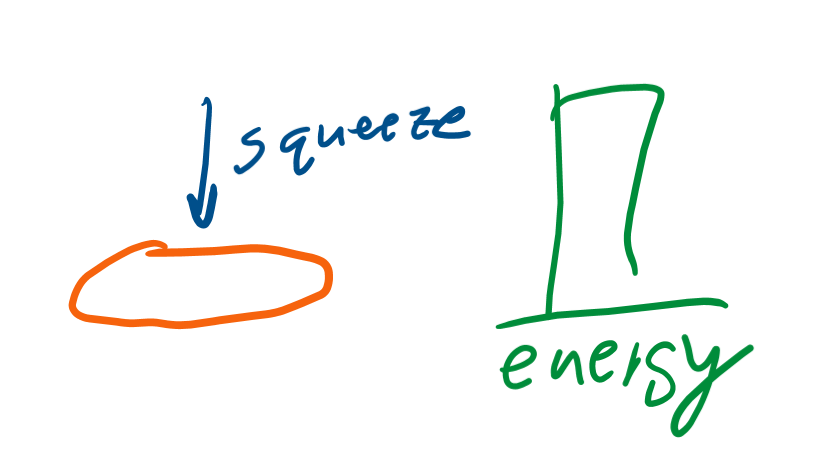 squeeze
energy